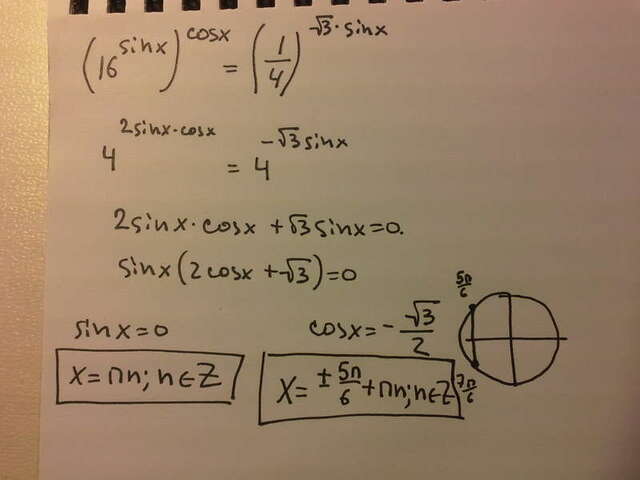 (16^sinx)^cosx = (1/4)^√3·sinx
4^2sinx·cosx = 4^-√3sinx
2sinx·cosx + √3sinx=0.
sinx(2cosx+√3)=0
sinx=0
x=πn; n∈Z
cosx=-√3/2
x=±5π/6+πn; n∈Z
5π/6
7π/6